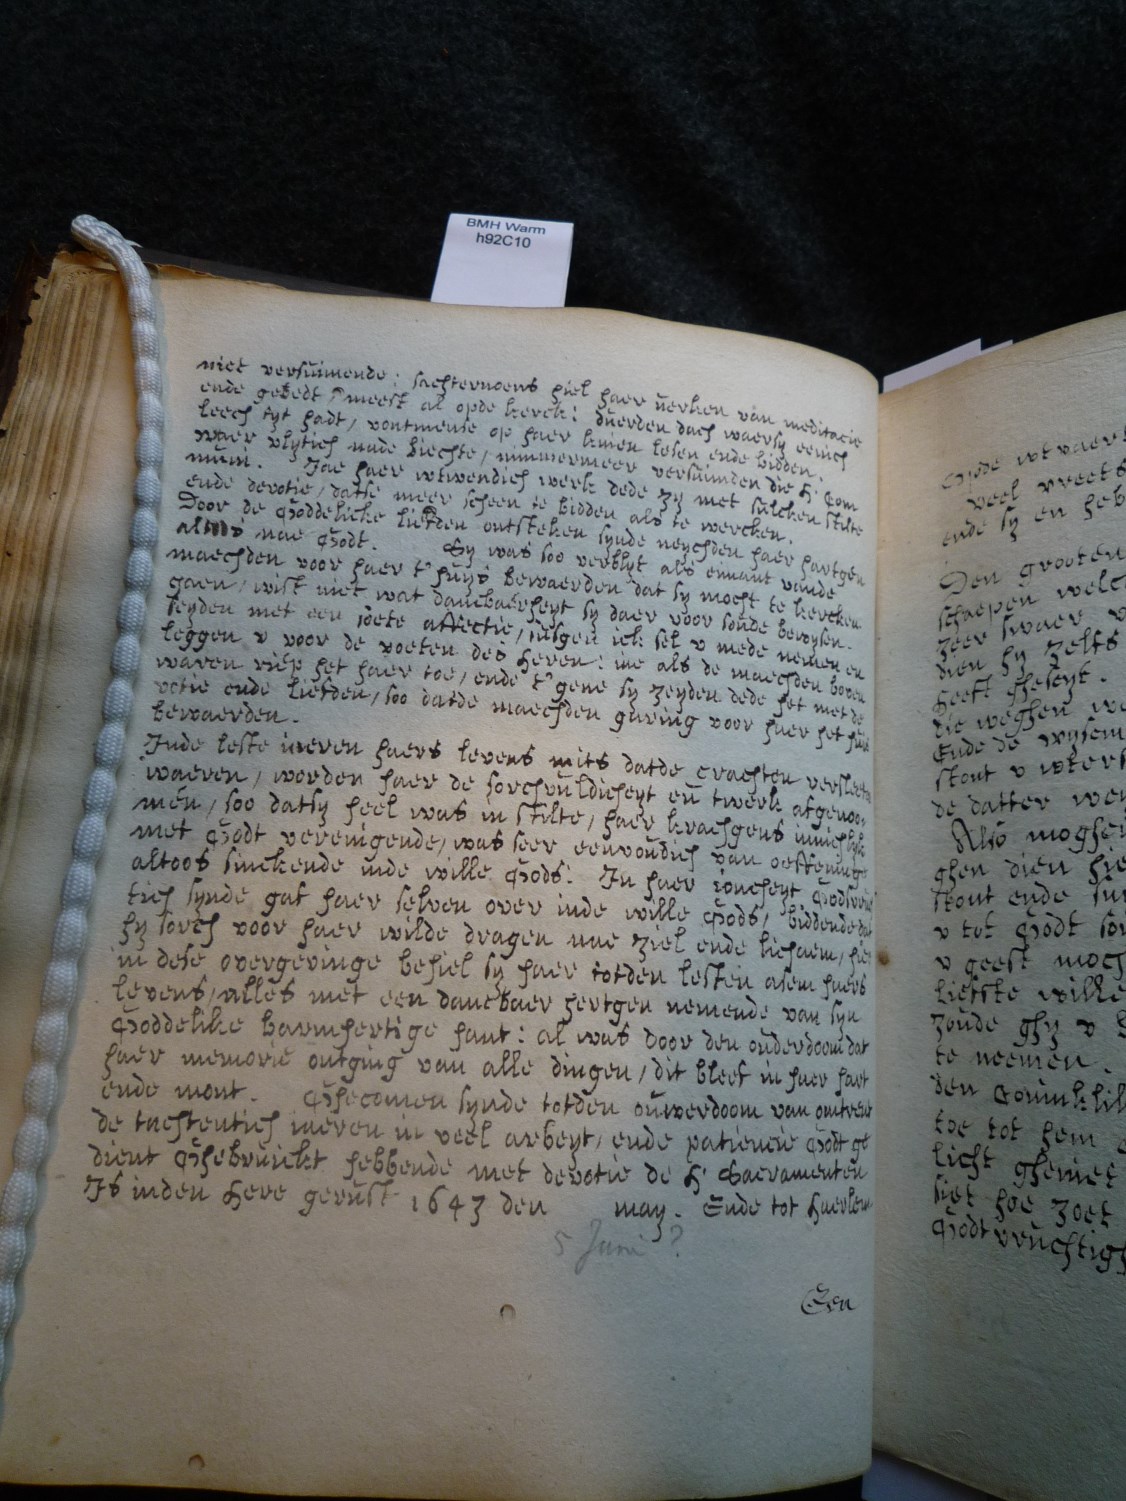 BMH Warm
h92C10
niet versuimende: sachternoens hiel haer uerken van meditacie
ende gebedt meest al opde kerck: duerden dach waersy eenich
leech tyt hadt, vontmense op haer knien lesen ende bidden.
waer vlytich nade biechte, nimmermeer versuimden die H. Com
muni. Jae haer wtwendich werk dede zy met sulcken stilte
ende devotie, datse meer scheen te bidden als te wercken.
Door de Goddelicke liefden ontsteken synde neychden haer hartgen
altoos nae Godt. Sy was soo verblyt als eimant vande
maechden voor haer t'huys bewaerden dat sy mocht te kercken
gaen, wist niet wat danckbaerheyt sy daer voor soude bewysen.
seyden met een soete affectie, susgen ick sel u mede nemen en
leggen u voor de voeten des Heren: me als de maechden boven
waren riep het haer toe, ende t'gene sy zeyden dede het met de
votie ende liefden, soo datde maechden gaering voor haer het huis
bewaerden.
Inde leste iaeren haers levens mits datde crachten versleeten
waeren, worden haer de sorchvuldicheyt en twerk afgenoo
men, soo datsy heel was in stilte, haer krachgens innichlyk
met Godt verenigende, was seer eenvoudich van oeffeninge
altoos sinckende inde wille Gods. In haer ioncheyt Godsvruch
tich synde gaf haer selven over inde wille Gods, biddende dat
hy sorch voor haer wilde dragen nae ziel ende lichaem, hier
in dese overgevinge behiel sy haer totden lesten asem haers
levens, alles met een danckbaer hertgen nemende van syn
Goddelike barmhertige hant: al was door den ouderdoom dat
haer memorie ontging van alle dingen, dit bleef in haer hart
ende mont. Ghecomen synde totden ouwerdoom van omtrent
de tachtentich iaeren in veel arbeyt, ende patiencie Godt ge
dient Ghebruickt hebbende met devotie de H. Sacramenten
Is inden Here gerust 1643 den may. Ende tot Haerlem
5 Juni ?
Een
Gode wtvaer
veel vreets
ende sy en heb
Den grooten
schapen welc
zeer swaer v
dien hy zelfs
heeft gheseyt.
die weghen we
Ende de wysem
stout v wters
de datter wey
Also moghen
ghen dien hie
stout ende su
v tot Godt so
v geest moch
liefste wille
zoude ghy v
te neemen.
den Coninklik
toe tot hem
licht gheniet
siet hoe zoet
Godt vruchtigh